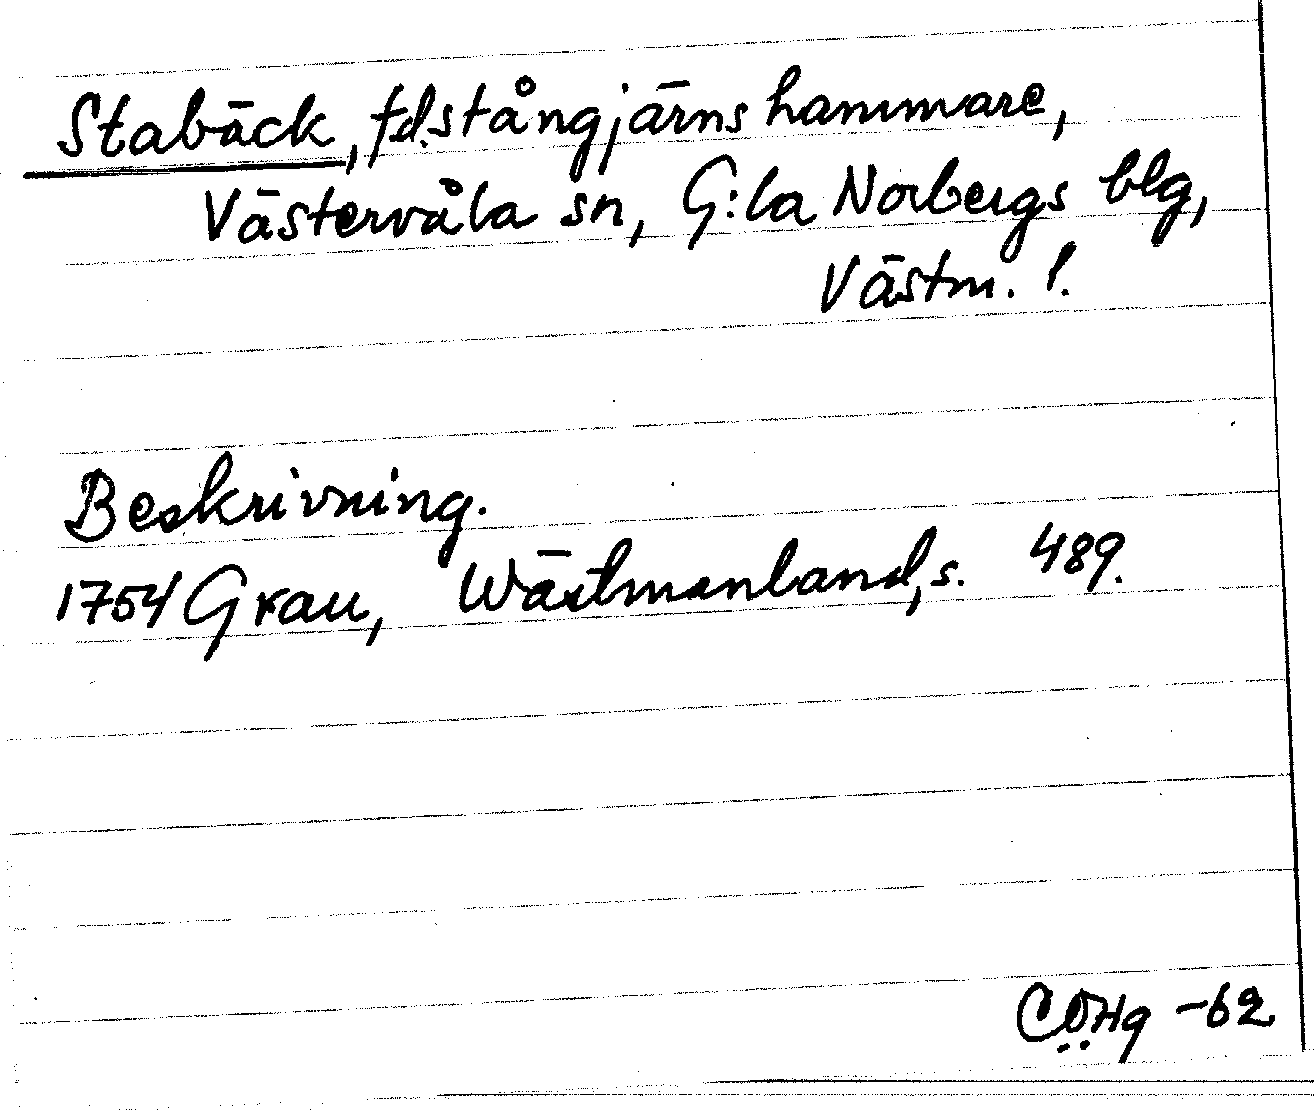 Stabäck, fd. stångjärnshammare,
Västervåla sn, G:la Norbergs blg,
Västm. l.
Beskrivning.
1754 Grau, Wästmanland, s. 489.
CÖHg -62